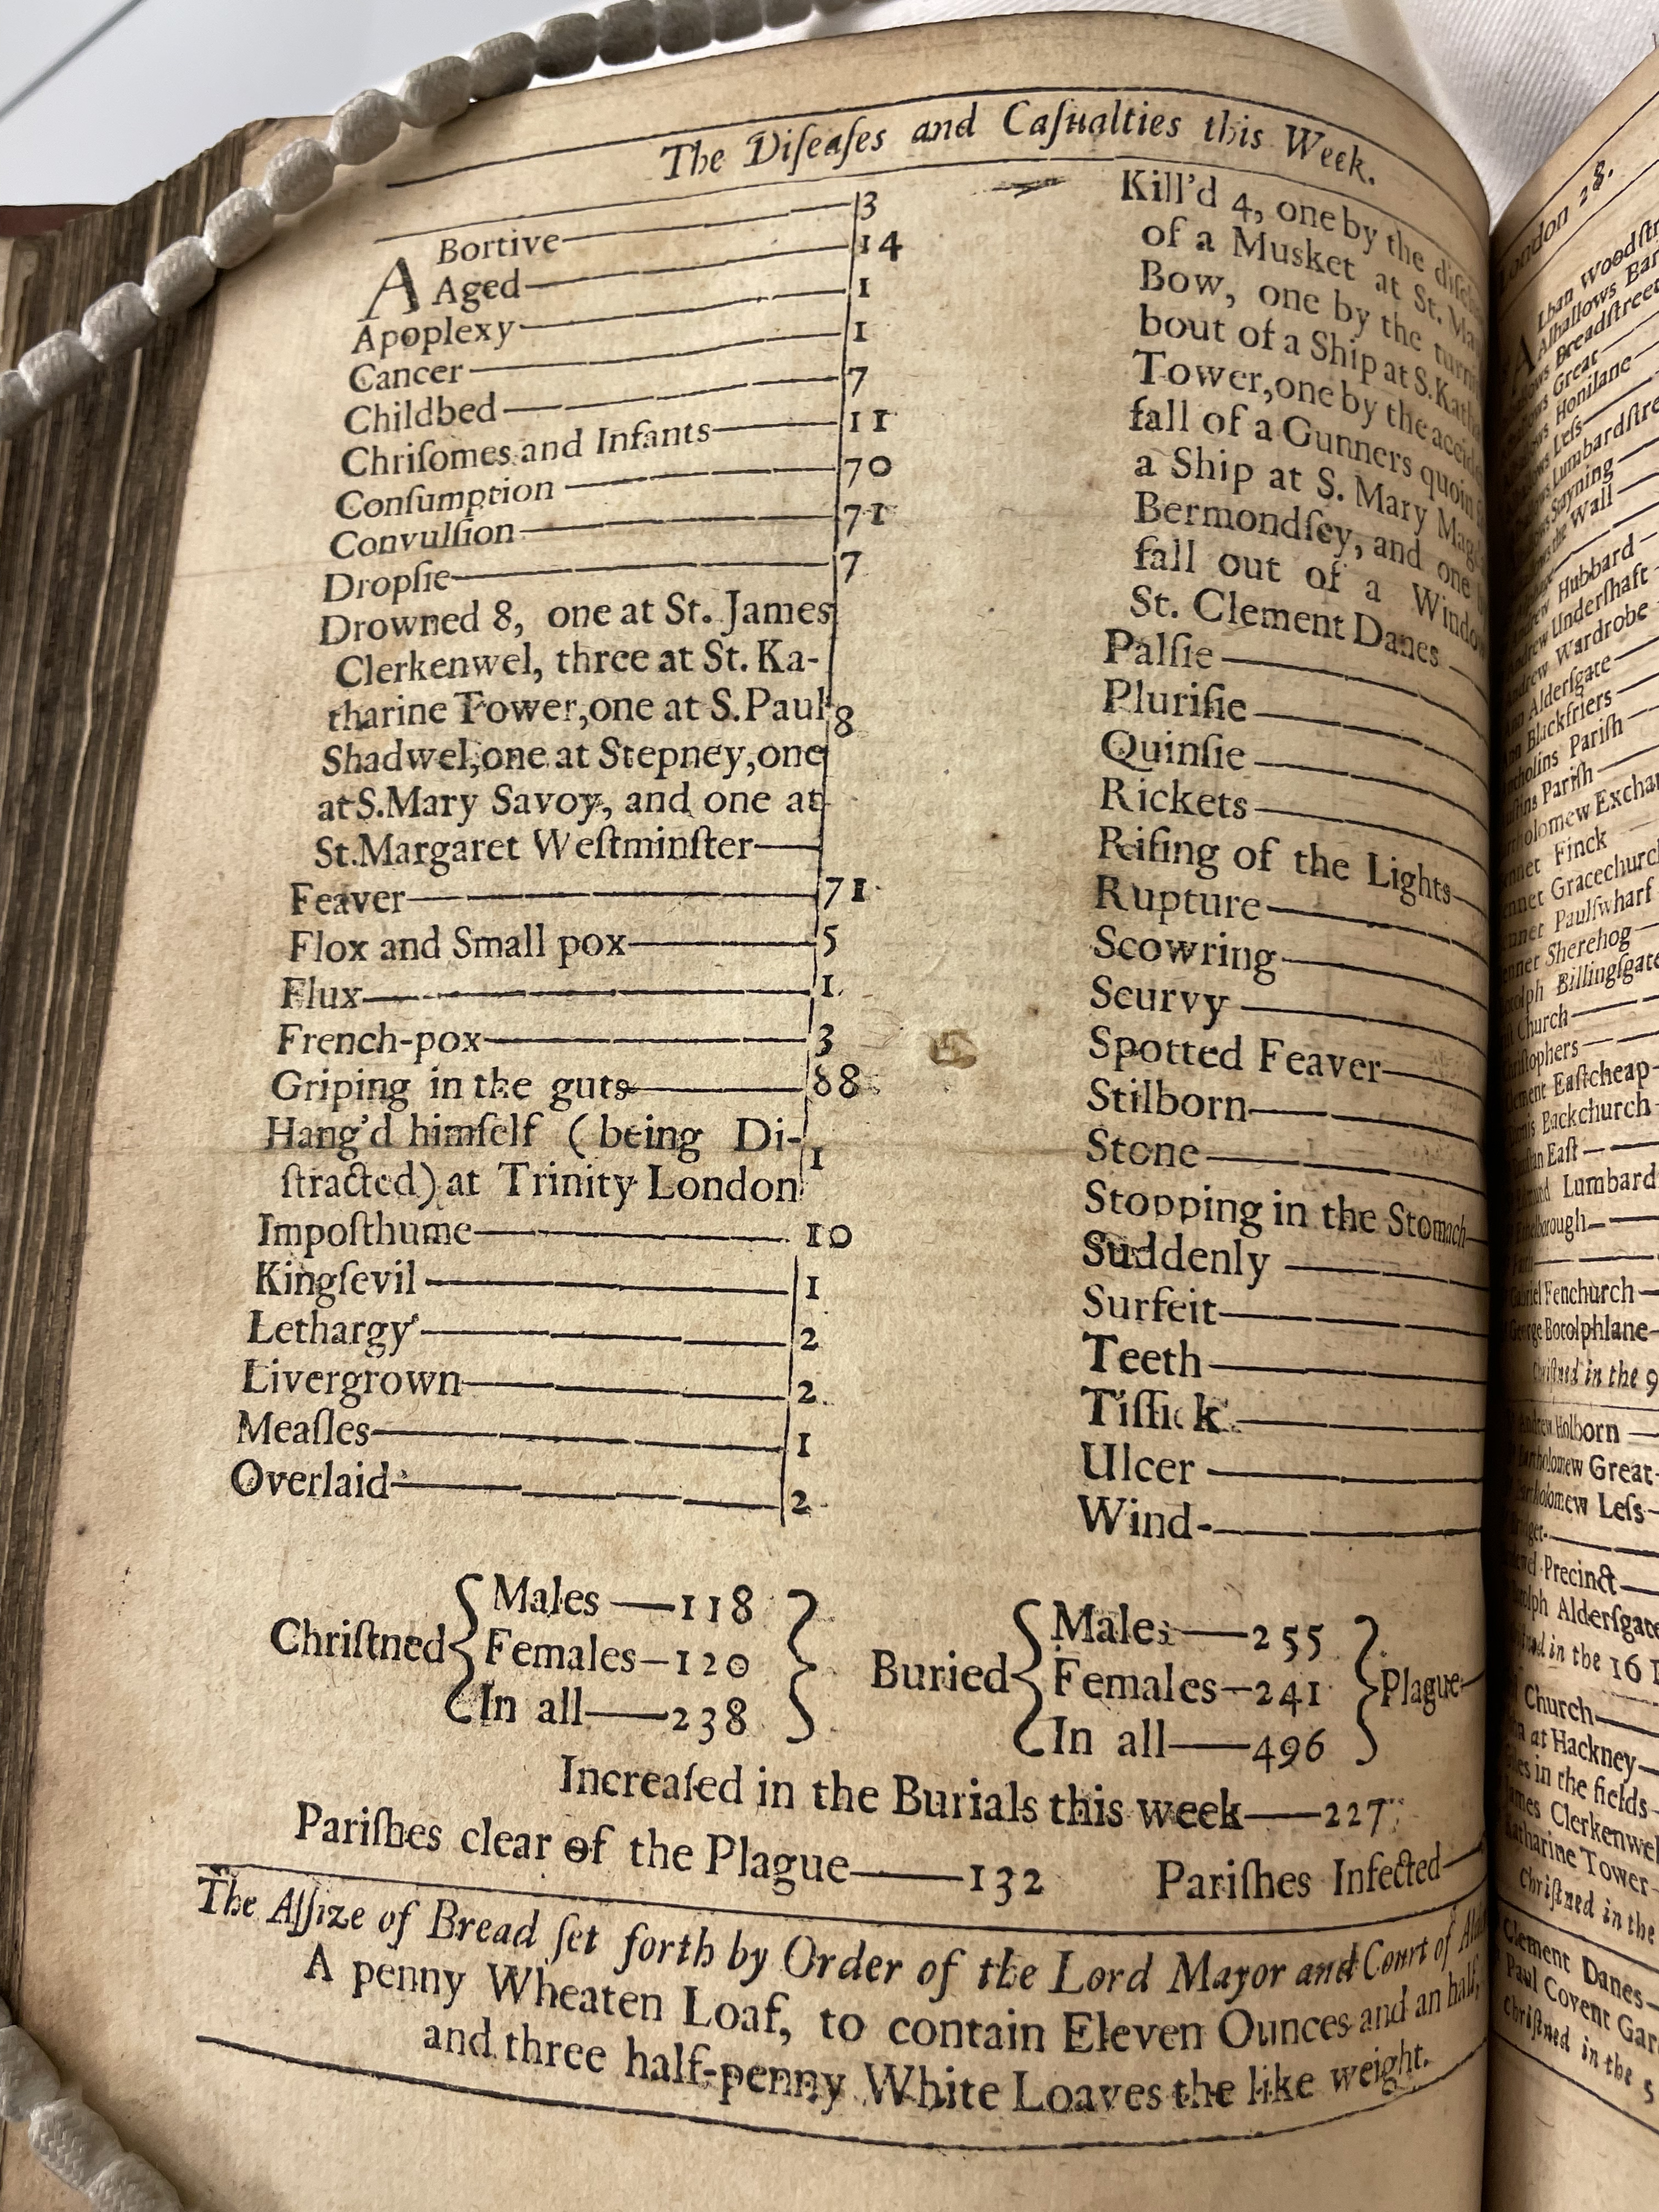 The Diſeaſes and Caſualties this Week.
ABortive 3
Aged 14
Apoplexy 1
Cancer 1
Childbed 7
Chriſomes and Infants 11
Conſumption 70
Convulſion 71
Dropſie 7
Drowned 8, one at St. James
Clerkenwel, three at St. Ka-
tharine Tower, one at S. Paul 8
Shadwel, one at Stepney, one
at S. Mary Savoy, and one at
St. Margaret Weſtminſter
Feaver 71
Flox and Small pox 5
Flux 1
French-pox 3
Griping in the guts 88
Hang'd himſelf (being Di- 1
ſtracted) at Trinity London
Impoſthume 10
Kingſevil 1
Lethargy 2
Livergrown 2
Meaſles 1
Overlaid 2
Kill'd 4, one by the
of a Musket at St.
Bow, one by the
bout of a Ship at S.
Tower, one by the
fall of a Gunners quoin
a Ship at S. Mary
Bermondſey, and one
fall out of a
St. Clement Danes
Palſie
Pluriſie
Quinſie
Rickets
Riſing of the Lights
Rupture
Scowring
Scurvy
Spotted Feaver
Stilborn
Stone
Stopping in the Stomach
Suddenly
Surfeit
Teeth
Tiſſick
Ulcer
Wind
Chriſtned
Males — 118
Females — 120
In all — 238
Buried
Males — 255
Females — 241
In all — 496
Plague
Increaſed in the Burials this week — 227
Pariſhes clear of the Plague — 132 Pariſhes Infected
The Aſſize of Bread ſet forth by Order of the Lord Mayor and Court of
A penny Wheaten Loaf, to contain Eleven Ounces and an half,
and three half-penny White Loaves the like weight.
London 28.
Alban
Alhallows
Breadſtreet
Great
Honilane
Leſs
Stayning
Wall
Hubbard
Underſhaft
Wardrobe
Alderſgate
Blackfriers
Pariſh
Pariſh
Finck
Paulſwharf
Sherehog
Billingſgate
Church
Eaſtcheap
Backchurch
Eaſt
Lumbard
Fenchurch
George Botolphlane
in the 9
Holborn
Great
Leſs
Precinct
Alderſgate
in the 16
Church
at Hackney
in the fields
Clerkenwel
Tower
Chriſtned in the
Clement Danes
Paul Covent
Chriſtned in the 5